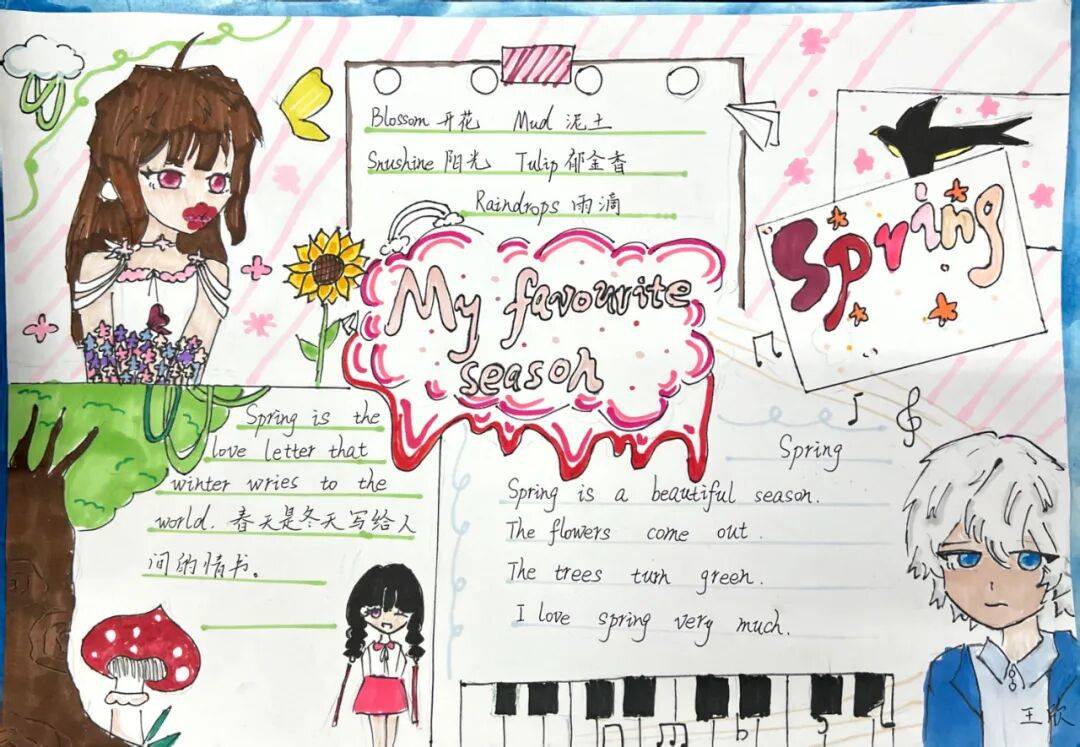 Blossom 开花 Mud 泥土
Snushine 阳光 Tulip 郁金香
Raindrops 雨滴
Spring
My favourite
season
Spring is the
love letter that
winter wries to the
world. 春天是冬天写给人
间的情书。
Spring
Spring is a beautiful season.
The flowers come out.
The trees turn green.
I love spring very much.
王欣